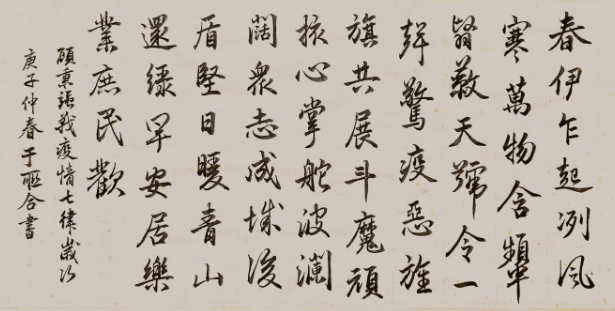 春伊乍起冽風
寒萬物含顰
翳蔽天號令一
聲驚疫惡旌
旗共展斗魔頑
核心掌舵波瀾
闊衆志成城後
盾堅日暖青山
還綠早安居樂
業庶民歡
秉戰疫情七律歲次
庚子仲春于聊合書